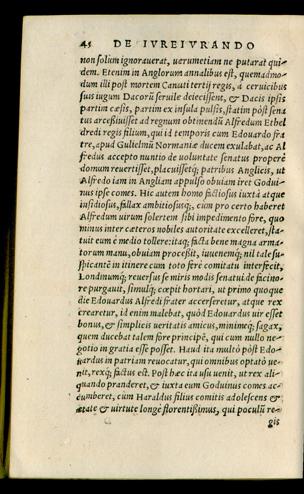 45 DE IVREIVRANDO
non solum ignorauerat, uerumetiam ne putarat qui-
dem. Etenim in Anglorum annalibus est, quemadmo-
dum illi post mortem Canuti tertij regis, a ceruicibus
suis iugum Dacorũ seruile deiecissent, & Dacis ipsis
partim cæsis, partim ex insula pulsis, statim pòst sena
tus arcessiuisset ad regnum obtinendũ Alfredum Ethel
dredi regis filium, qui id temporis cum Edouardo fra
tre, apud Gulielmũ Normaniæ ducem exulabat, ac Al
fredus accepto nuntio de uoluntate senatus properè
domum reuertisset, placuissetq; patribus Anglicis, ut
Alfredo iam in Angliam appulso obuiam iret Godui-
nus ipse comes. Hic autem homo factiosus iuxtà atque
insidiosus, fallax ambitiosusq;, cum pro certo haberet
Alfredum uirum solertem sibi impedimento fore, quo
minus inter cæteros nobiles autoritate excelleret, sta-
tuit eum è medio tollere: itaq; facta bene magna arma-
torum manu, obuiam processit, iuuenemq; nil tale su-
spicantẽ in itinere cum toto ferè comitatu interfecit,
Londinumq; reuersus se miris modis senatui de facino-
re purgauit, simulq; cœpit hortari, ut primo quoque
die Edouardus Alfredi frater accerseretur, atque rex
crearetur, id enim malebat, quòd Edouardus uir esset
bonus, & simplicis ueritatis amicus, minimeq; sagax,
quem ducebat talem fore principẽ, qui cum nullo ne-
gotio in gratia esse posset. Haud ita multò pòst Edo-
uardus in patriam reuocatur, qui omnibus optatò ue-
nit, rexq; factus est. Post hæc ita usu uenit, ut rex ali-
quando pranderet, & iuxta eum Goduinus comes ac-
cumberet, cum Haraldus filius comitis adolescens &
ætate & uirtute longè florentissimus, qui poculũ re-
gis